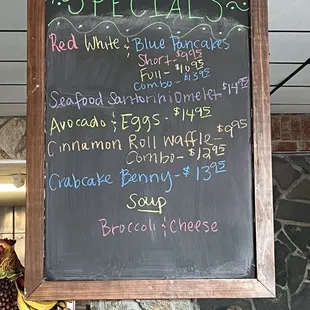 SPECIALS
Red White & Blue Pancakes
Short - $9.95
Full - $10.95
Combo - $13.95
Seafood Santorini Omelet - $14.95
Avocado & Eggs - $14.95
Cinnamon Roll Waffle - $9.95
Combo - $12.95
Crabcake Benny - $13.95
Soup
Broccoli & Cheese